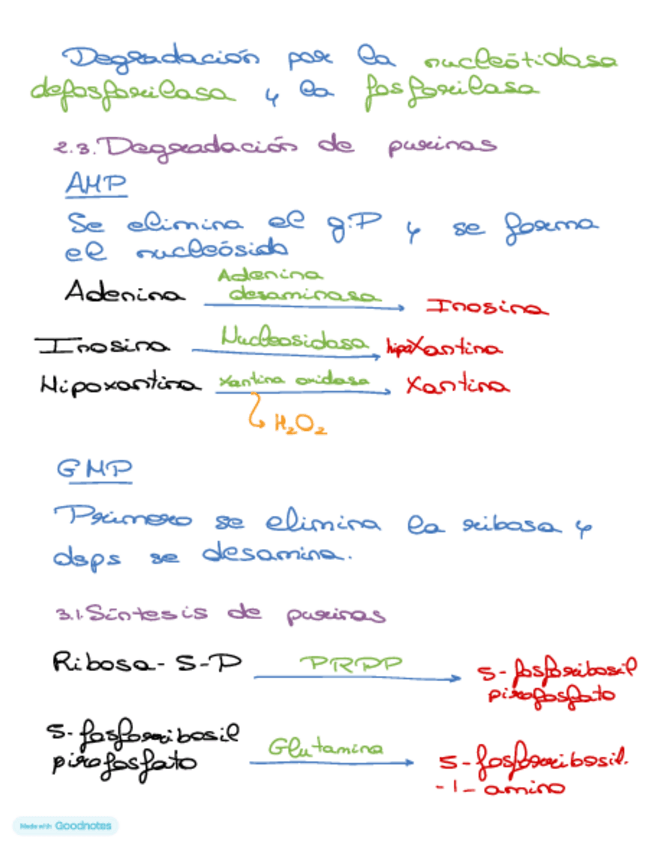 Degradación por la nucleótidasa
defosforilasa y la fosforilasa
2.3. Degradación de purinas
AMP
Se elimina el g.P y se forma
el nucleósido
Adenina Adenina desaminasa Inosina
Inosina Nucleosidasa hipoxantina
Hipoxantina Xantina oxidasa Xantina
H₂O₂
GMP
Primero se elimina la ribosa y
dsps se desamina.
3.1. Síntesis de purinas
Ribosa-5-P PRPP 5-fosforibosil
pirofosfato
5-fosforribosil
pirofosfato Glutamina 5-fosforribosil.
-1-amino
Made with Goodnotes